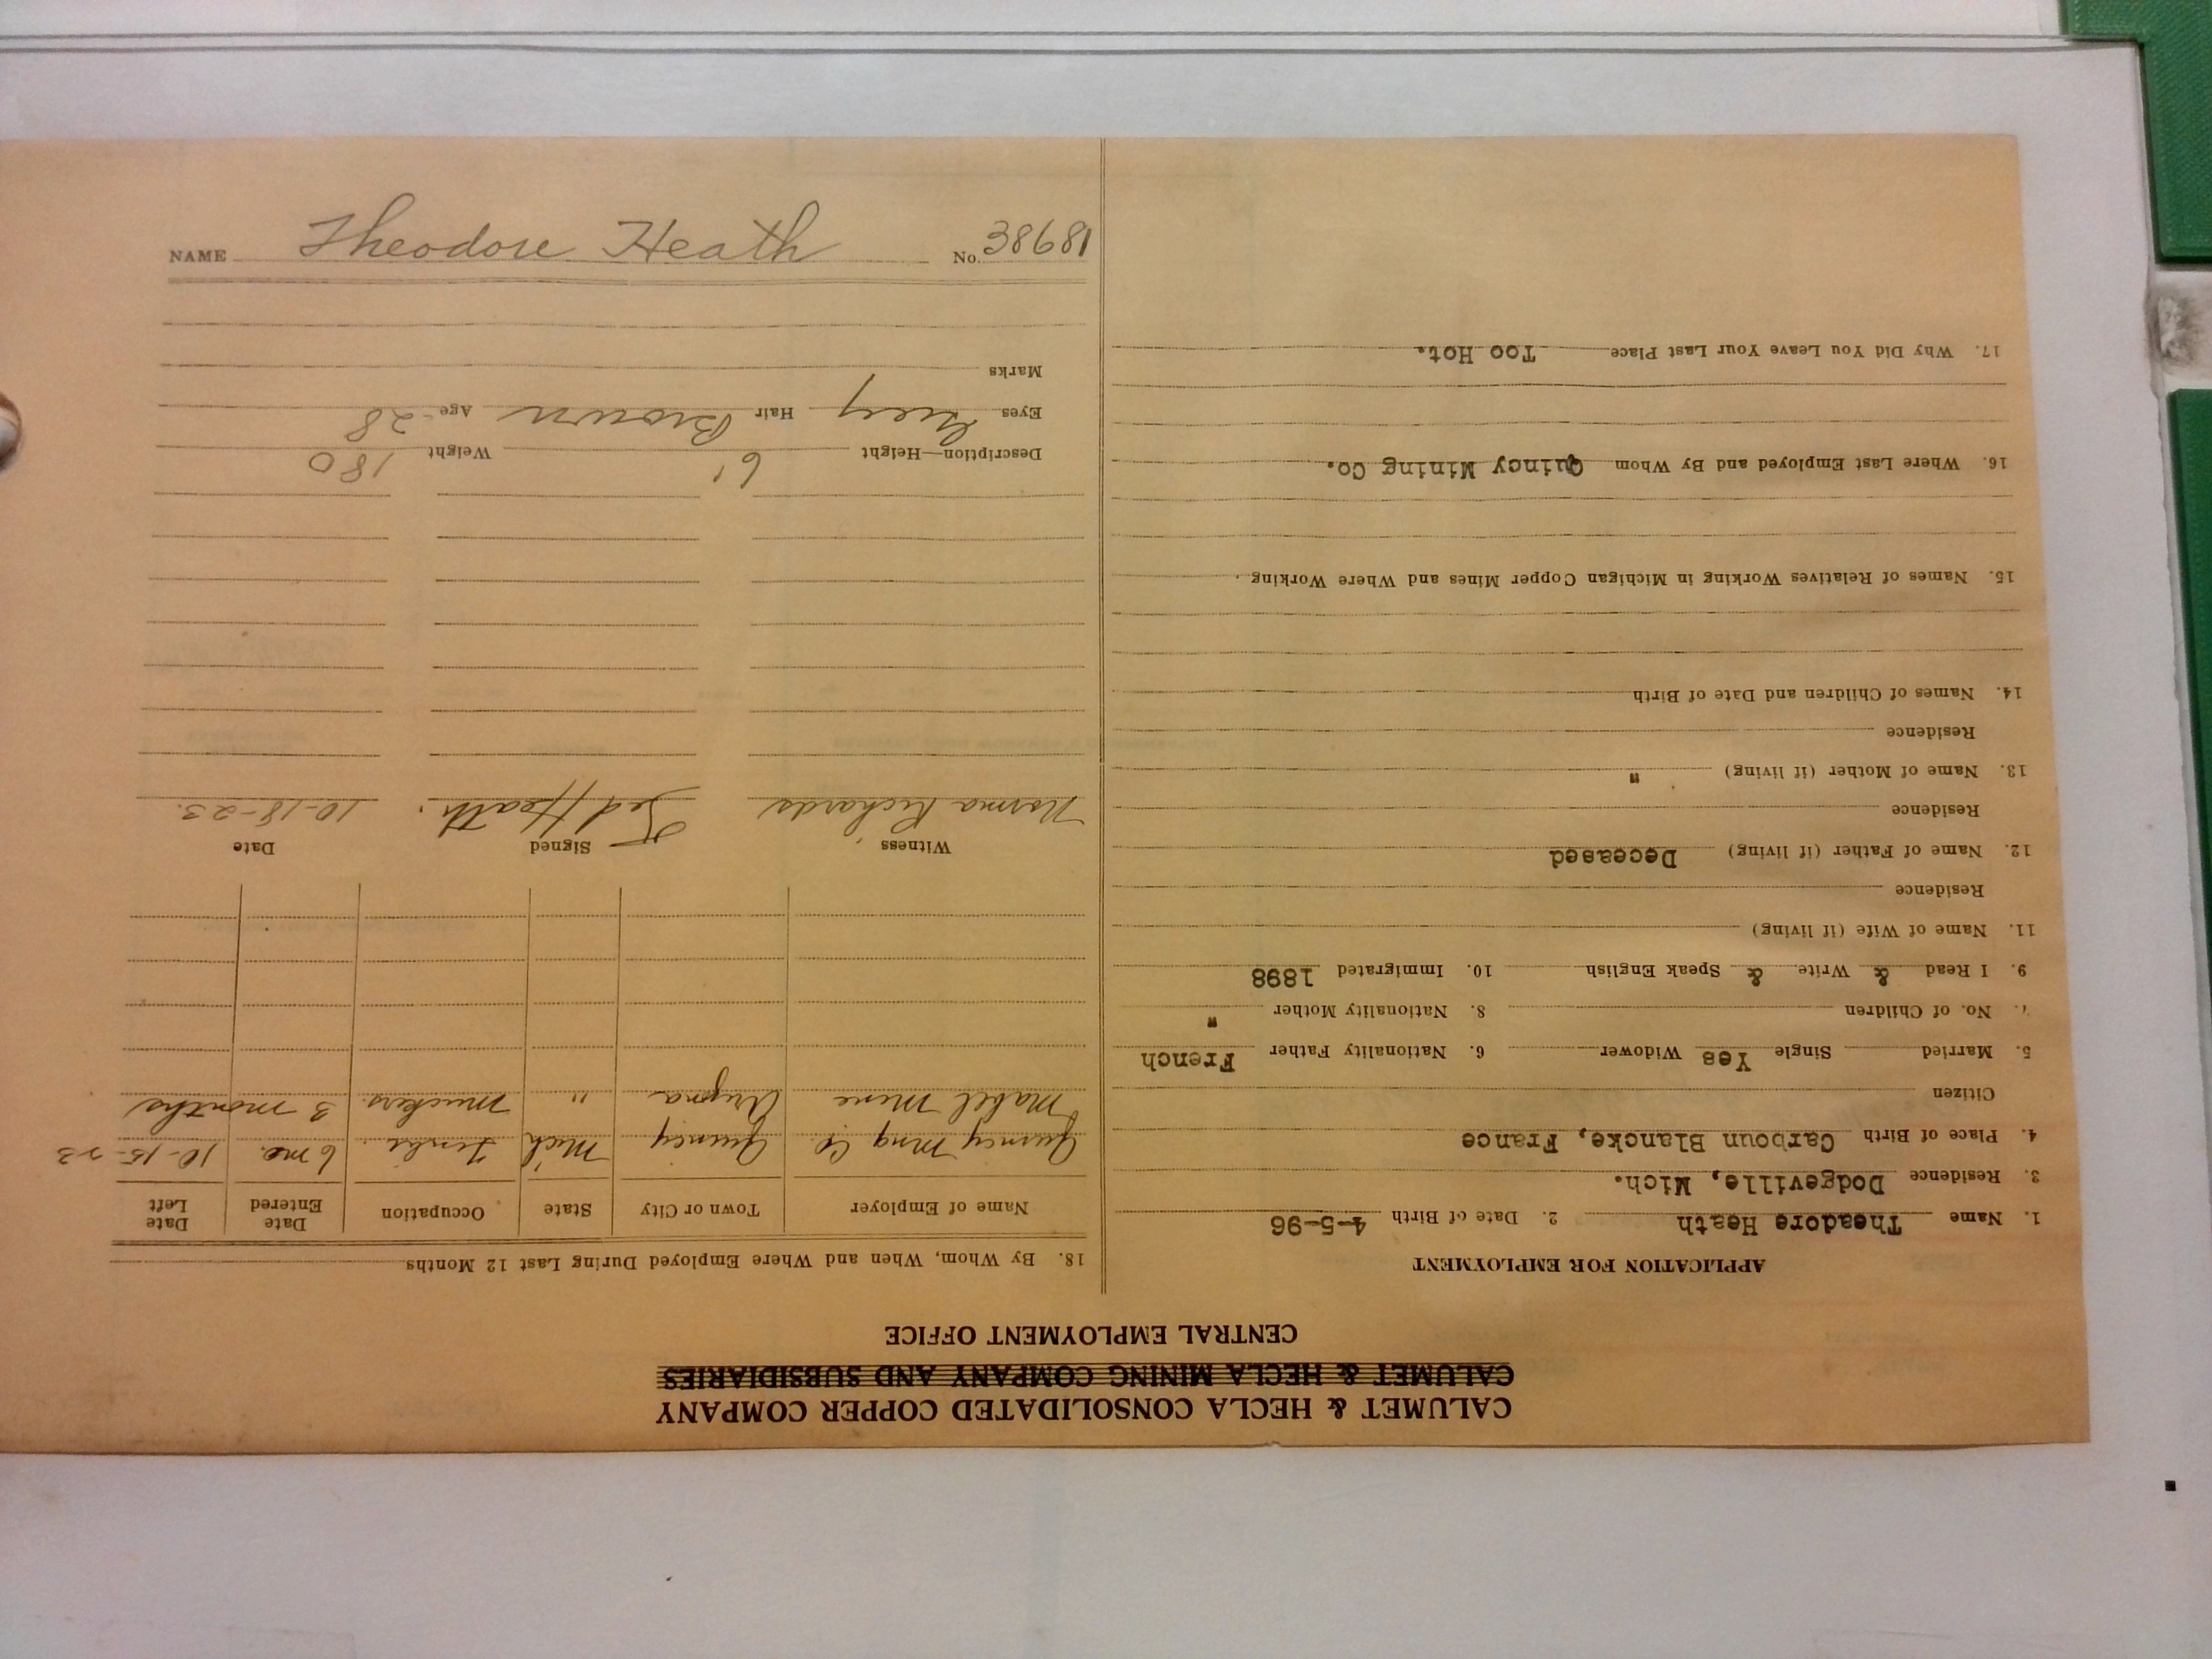 CALUMET & HECLA CONSOLIDATED COPPER COMPANY
CALUMET & HECLA MINING COMPANY AND SUBSIDIARIES
CENTRAL EMPLOYMENT OFFICE
APPLICATION FOR EMPLOYMENT
1. Name Theadore Heath 2. Date of Birth 4-5-96
3. Residence Dodgeville, Mich.
4. Place of Birth Carboun Blancke, France
Citizen
5. Married Single Yes Widower 6. Nationality Father French
7. No. of Children 8. Nationality Mother "
9. I Read & Write & Speak English 10. Immigrated 1898
11. Name of Wife (if living)
Residence
12. Name of Father (if living) Deceased
Residence
13. Name of Mother (if living) "
Residence
14. Names of Children and Date of Birth
15. Names of Relatives Working in Michigan Copper Mines and Where Working
16. Where Last Employed and By Whom Quincy Mining Co.
17. Why Did You Leave Your Last Place Too Hot.
18. By Whom, When and Where Employed During Last 12 Months
Name of Employer Town or City State Occupation Date Entered Date Left
Quincy Mng Co Quincy Mich 6 mo. 10-15-23
Mabel Mine " muckers. 3 months
Witness Signed Date
Norma Richards Ted Heath. 10-18-23.
Description—Height 6' Weight 180
Eyes Grey Hair Brown Age 28
Marks
NAME Theodore Heath No. 38681